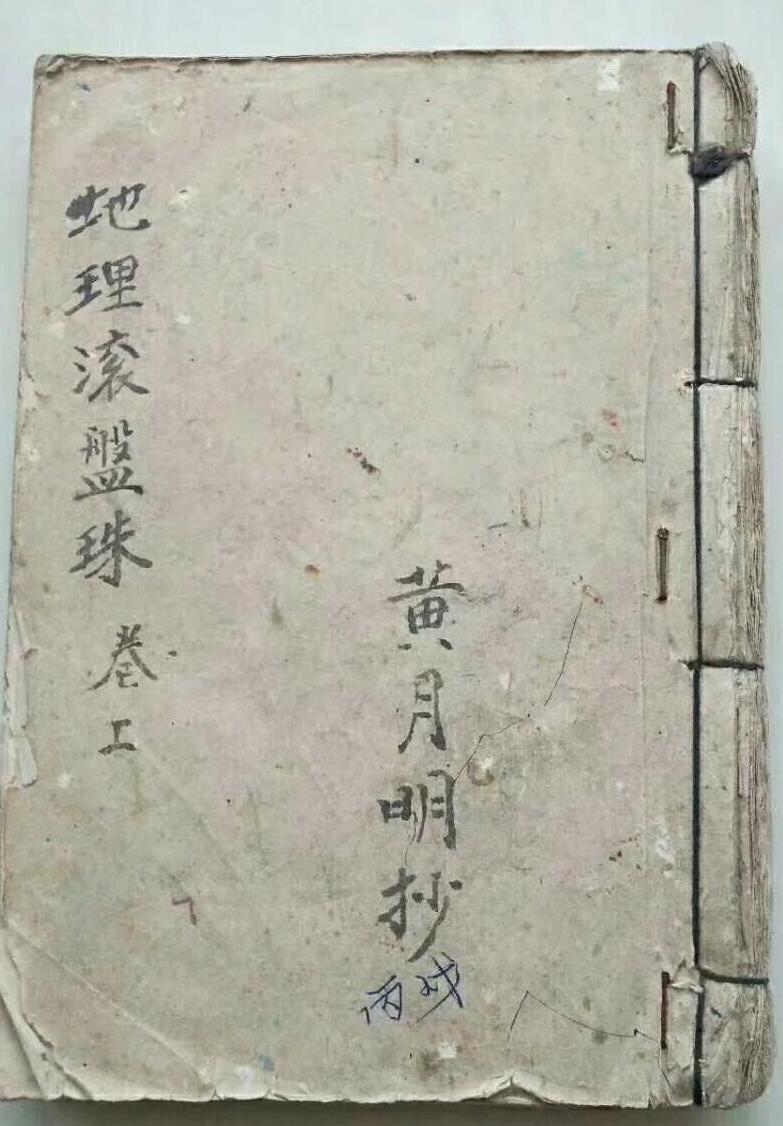 黄月明抄
丙戌
地理滚盤珠 卷上